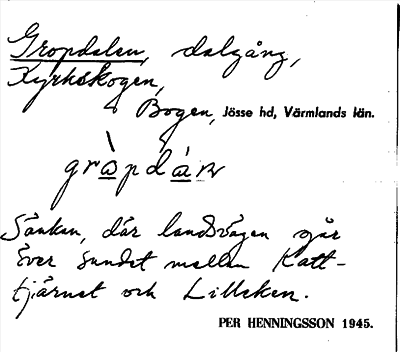 Gropdalen, dalgång,
Kyrkskogen,
Bogen, Jösse hd, Värmlands län.
gràpdàn
Sänkan, där landsvägen går
över sundet mellan Katt-
tjärnet och Lilleken.
PER HENNINGSSON 1945.